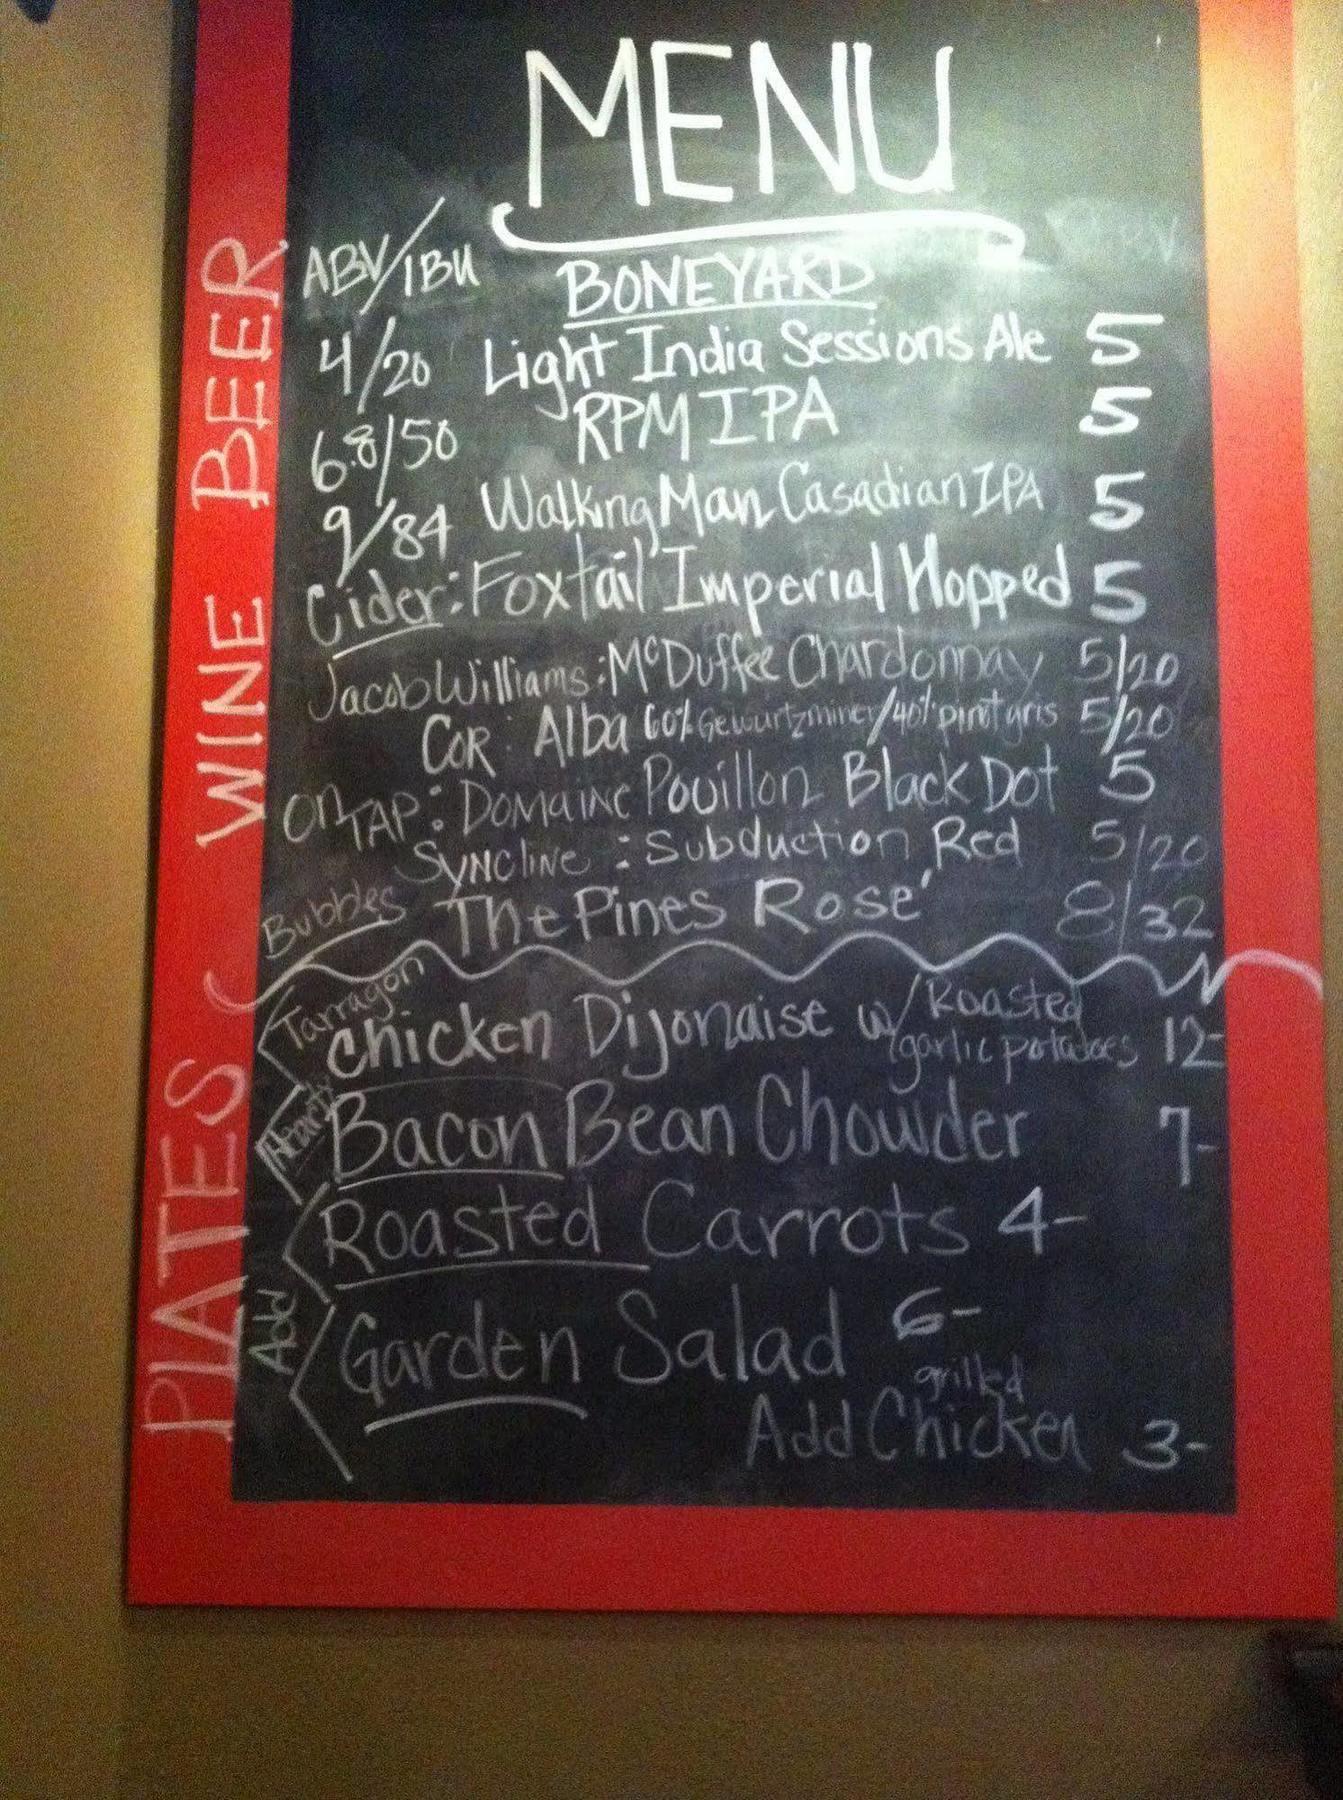 MENU
ABV/IBU BONEYARD
4/20 Light India Sessions Ale 5
6.8/50 RPM IPA 5
9/84 Walking Man Casadian IPA 5
Cider: Foxtail Imperial Hopped 5
Jacob Williams: McDuffee Chardonnay 5/20
COR: Alba 60% Gewurtzminer/40% pinot gris 5/20
On TAP: DOMAINE Pouillon Black Dot 5
SYNCLINE: Subduction Red 5/20
Bubbles The Pines Rosé 8/32
Tarragon
Chicken Dijonaise w/ Roasted
garlic potatoes 12-
Hearty Bacon Bean Chowder 7-
Roasted Carrots 4-
Add Garden Salad 6-
grilled
Add Chicken 3-
BEER
WINE
PLATES